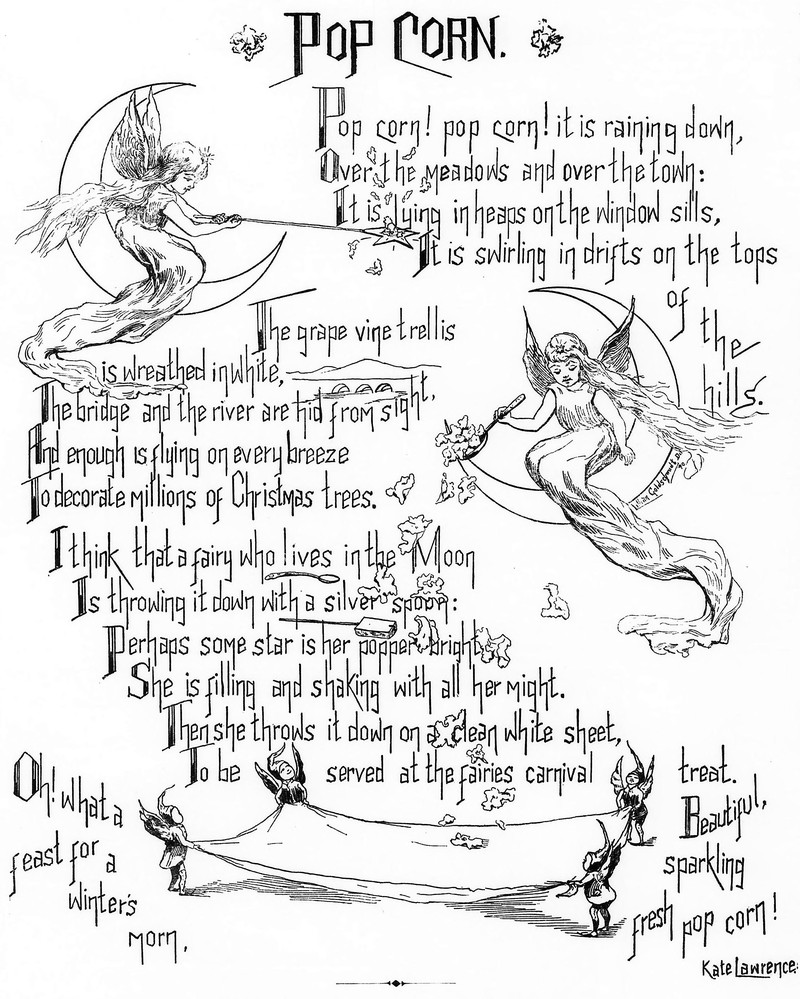 POP CORN.
Pop corn! pop corn! it is raining down,
Over the meadows and over the town:
It is lying in heaps on the window sills,
It is swirling in drifts on the tops
of the hills.
The grape vine trellis
is wreathed in white,
The bridge and the river are hid from sight,
And enough is flying on every breeze
To decorate millions of Christmas trees.
I think that a fairy who lives in the Moon
Is throwing it down with a silver spoon:
Perhaps some star is her popper bright,
She is filling and shaking with all her might.
Then she throws it down on a clean white sheet,
To be served at the fairies carnival treat.
Oh! what a
feast for a
winter's
morn,
Beautiful,
sparkling
fresh pop corn!
Kate Lawrence.